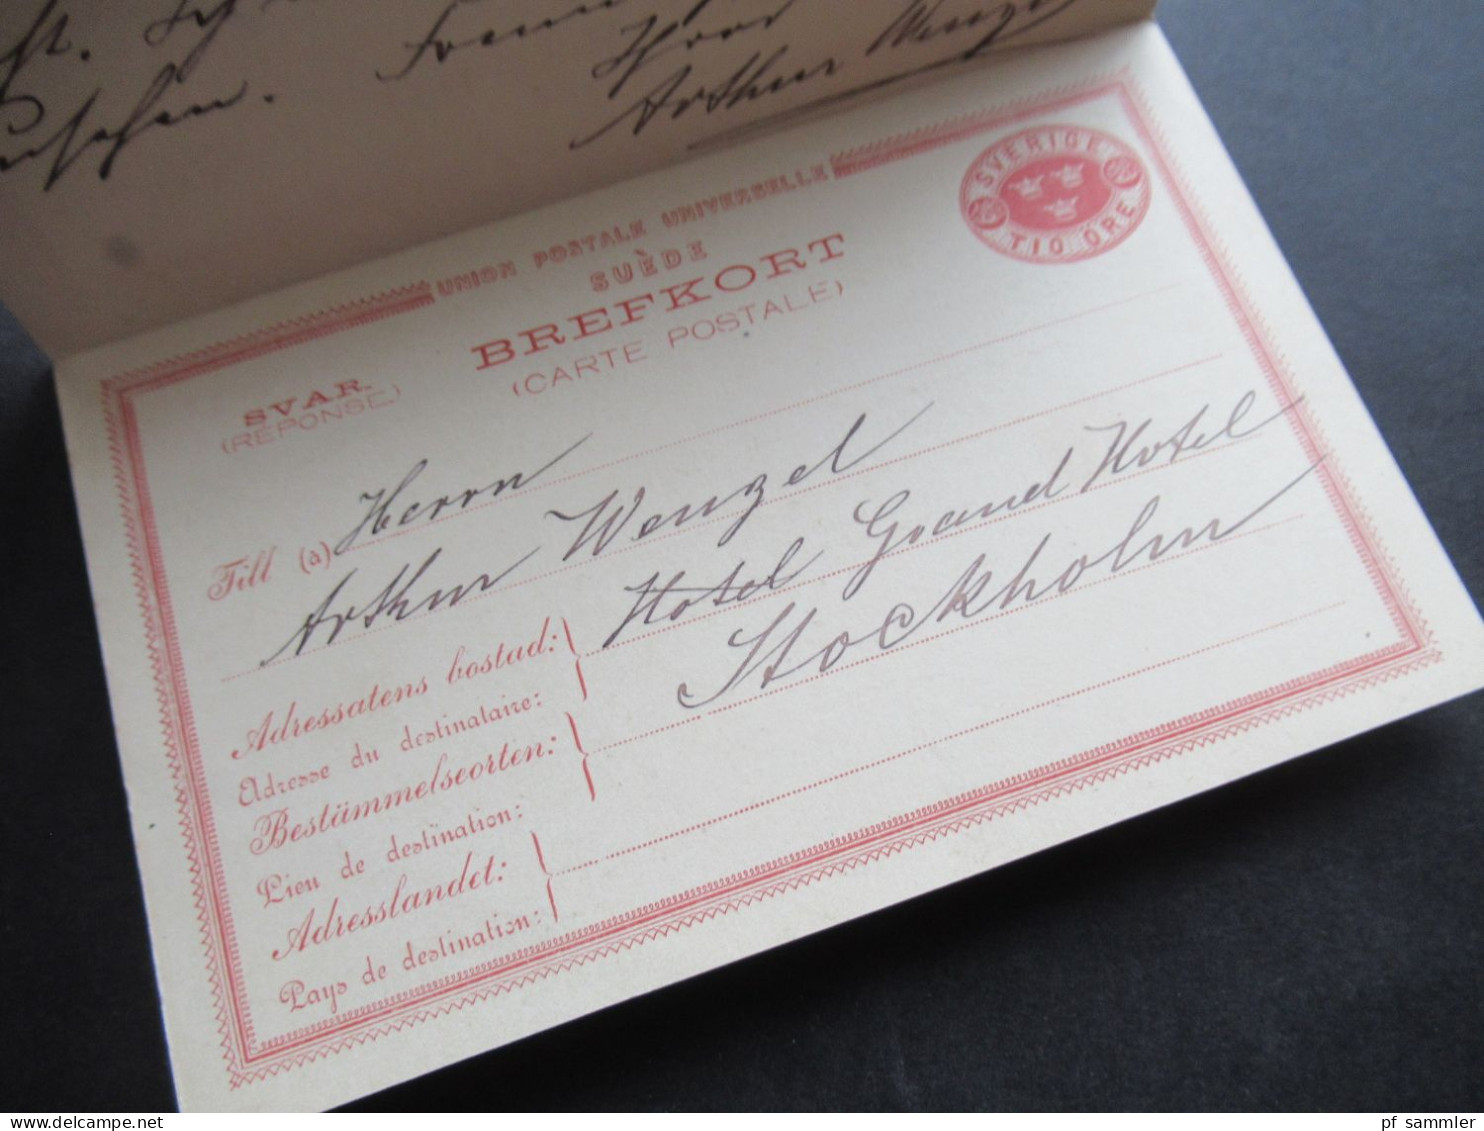 Arthur Wenzel
SVERIGE
TIO ÖRE
UNION POSTALE UNIVERSELLE
SUÈDE
BREFKORT
(CARTE POSTALE)
SVAR.
(RÉPONSE.)
Till (à) Herrn
Arthur Wenzel
Adressatens bostad: Hotel Grand Hotel
Adresse du destinataire:
Bestämmelseorten: Stockholm
Lieu de destination:
Adresslandet:
Pays de destination:
pf sammler